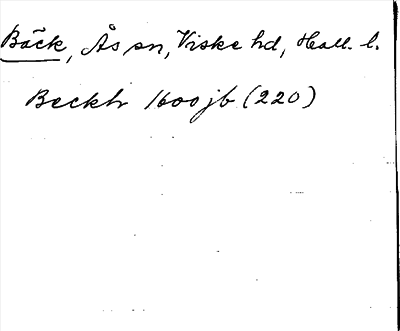 Bäck, Ås sn, Viske hd, Hall. l.
Beckh 1600 jb (220)